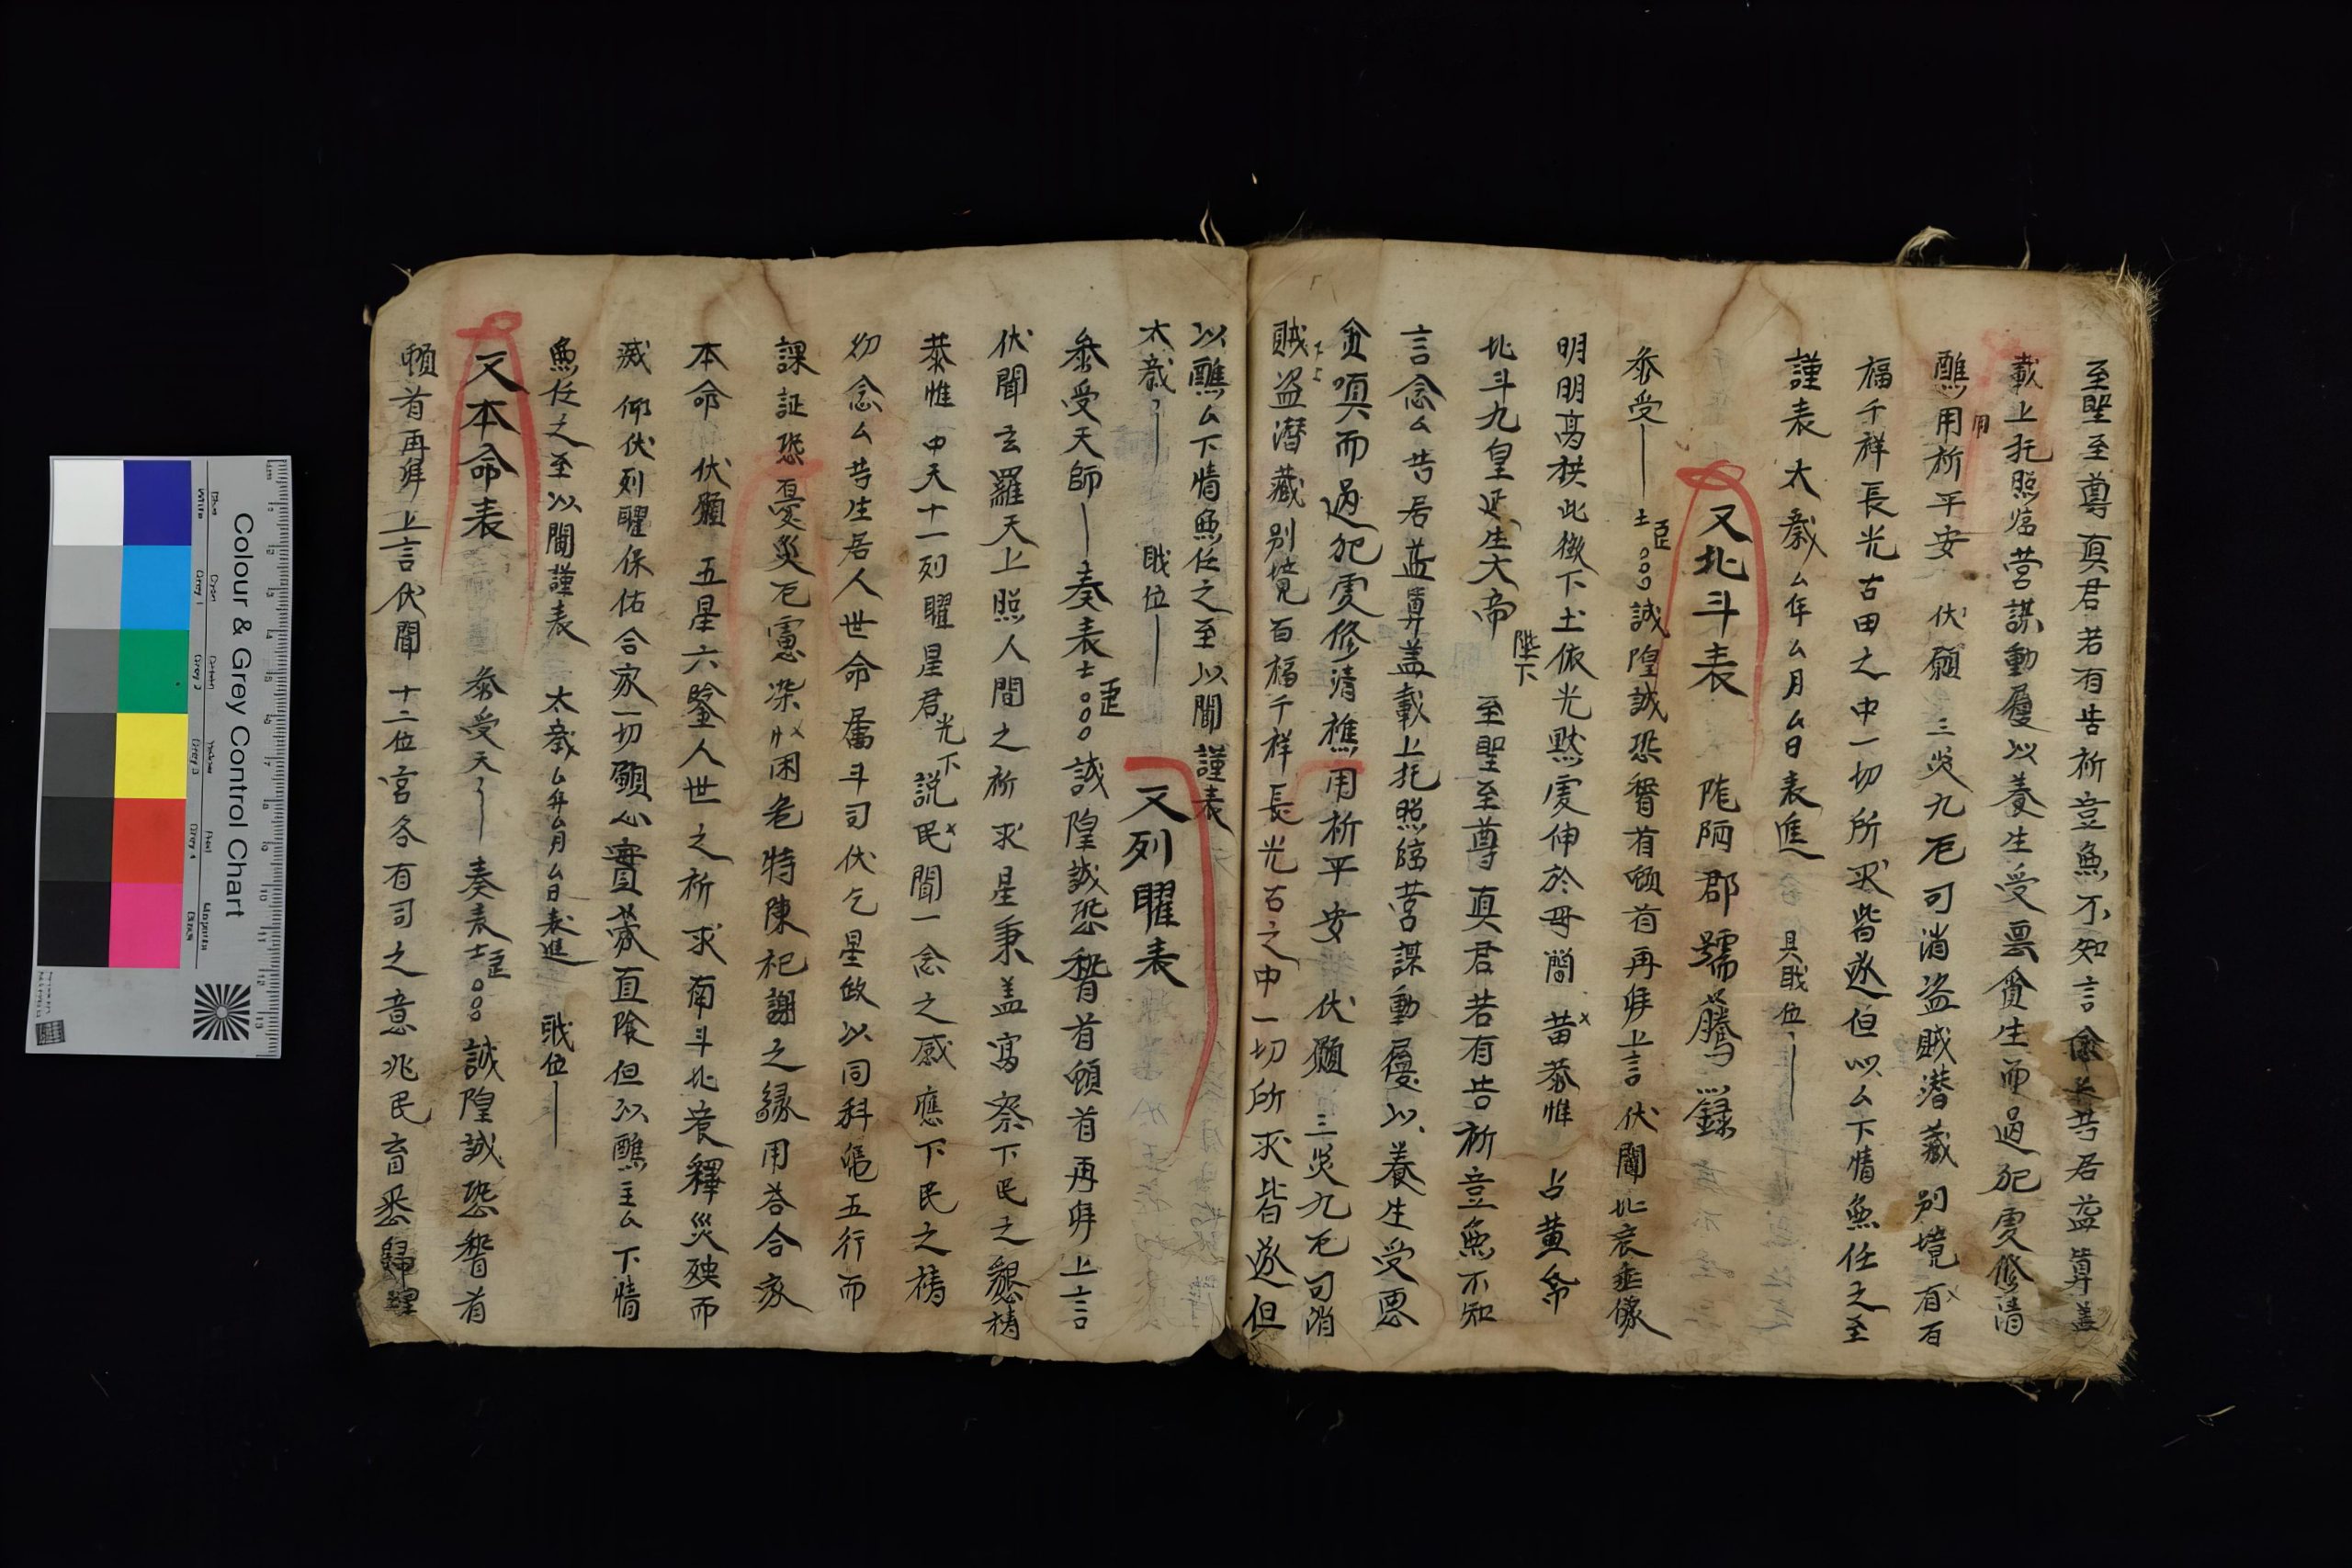 至聖至尊真君若有告祈豈魚不知言念厶等居益算盖
載上托照臨营謀動履以養生受畐貪生而過犯虔修清
醮用祈平安 伏願 三災九厄可消盗賊潜藏别境有百
用
福千祥長光古田之中一切所求皆遂但以厶下情無任之至
謹表 太歲厶年厶月厶日表進 具戝位
又北斗表 陇陋郡 騰錄
叅受 士臣 誠隍誠恐稽首頓首再拜上言 伏聞北哀垂像
明明高拱此微下土依光黙虔伸於毋簡 昔恭惟 占黄帝
北斗九皇延生大帝 陛下 至聖至尊真君若有告祈豈魚不知
言念厶告居益算盖載上托照臨营謀動履以養生受恩
貪嗔而過犯虔修清樵用祈平安 伏願 三災九厄可消
賊盗潜藏别境百福千祥長光古之中一切所求皆遂但
以醮厶下情魚任之至以聞謹表
太歲 戝位 又列曜表
叅受天師 奏表士臣 誠隍誠恐稽首頓首再拜上言
伏聞玄羅天上照人間之祈求星秉盖寓察下民之懇禱
恭惟中天十一列曜星君光下説民聞一念之感應下民之禱
切念厶等生居人世命屬斗司伏乞星啟以同科 五行而
課証恐憂災厄慮染 困危特陳祀謝之緣用答合家
本命 伏願 五星六 人世之祈求南斗北哀釋災殃而
滅 仰伏列曜保佑合家一切願心 直 但以醮主厶下情
魚任之至以聞謹表 太歲厶年厶月厶日表進 戝位
又本命表 叅受天 奏表士臣 誠隍誠恐稽首
頓首再拜上言伏聞 十二位宫各有司之意兆民育悉歸
Colour & Grey Control Chart